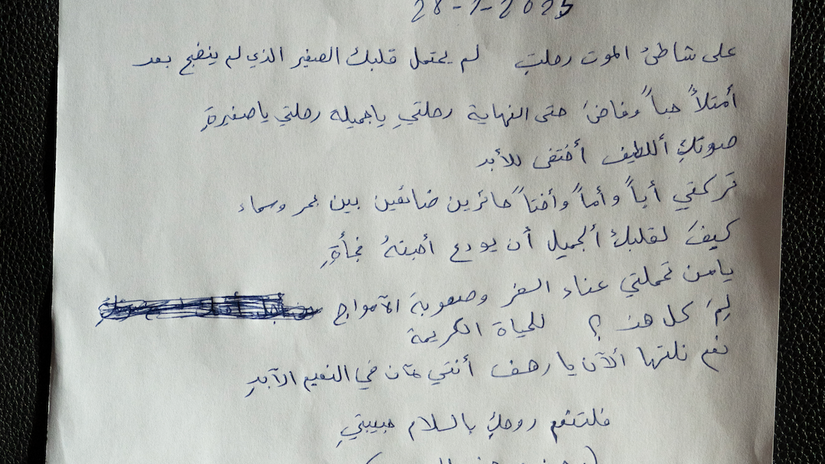 28-7-2025
على شاطئ الموت رحلتِ لم يحتمل قلبك الصغير الذي لم ينضج بعد
أمتلأ حباً وفاضَ حتى النهاية رحلتي ياجميله رحلتي ياصغيرةِ
صوتكِ أللطيف أختفى للأبد
تركتي أباً وأماً وأختاً حائرين ضائعين بين بحر وسماء
كيفَ لقلبكِ ألجميل أن يودع أحبتهُ فجأةِ
يامن تحملتي عناء السفر وصعوبة الآمواج
لِمَ كل هذ ؟ للحياة الكريمة
نعم نلتها ألآن يا رهف أنتي كان في النعيم الآبدي
فلتنعم روحكِ بالسلام حبيبتي